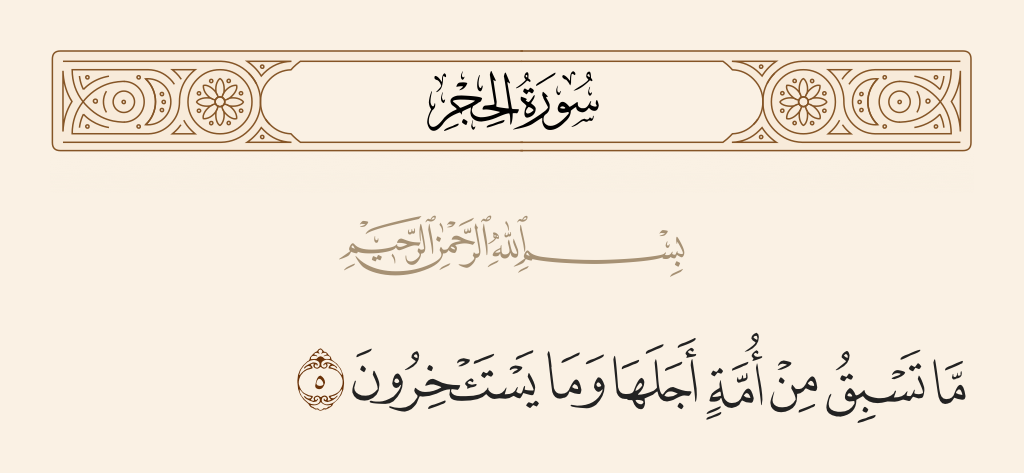 سُورَةُ الحِجْرِ
بِسْمِ ٱللَّهِ ٱلرَّحْمَٰنِ ٱلرَّحِيمِ
مَّا تَسْبِقُ مِنْ أُمَّةٍ أَجَلَهَا وَمَا يَسْتَـْٔخِرُونَ ٥